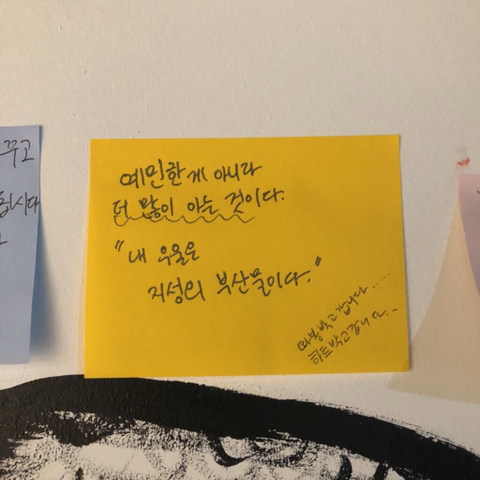 꾸고
합시다
예민한 게 아니라
더 많이 아는 것이다.
"내 우울은
지성의 부산물이다."
따봉박고갑니다.....
하트박고갑니다...